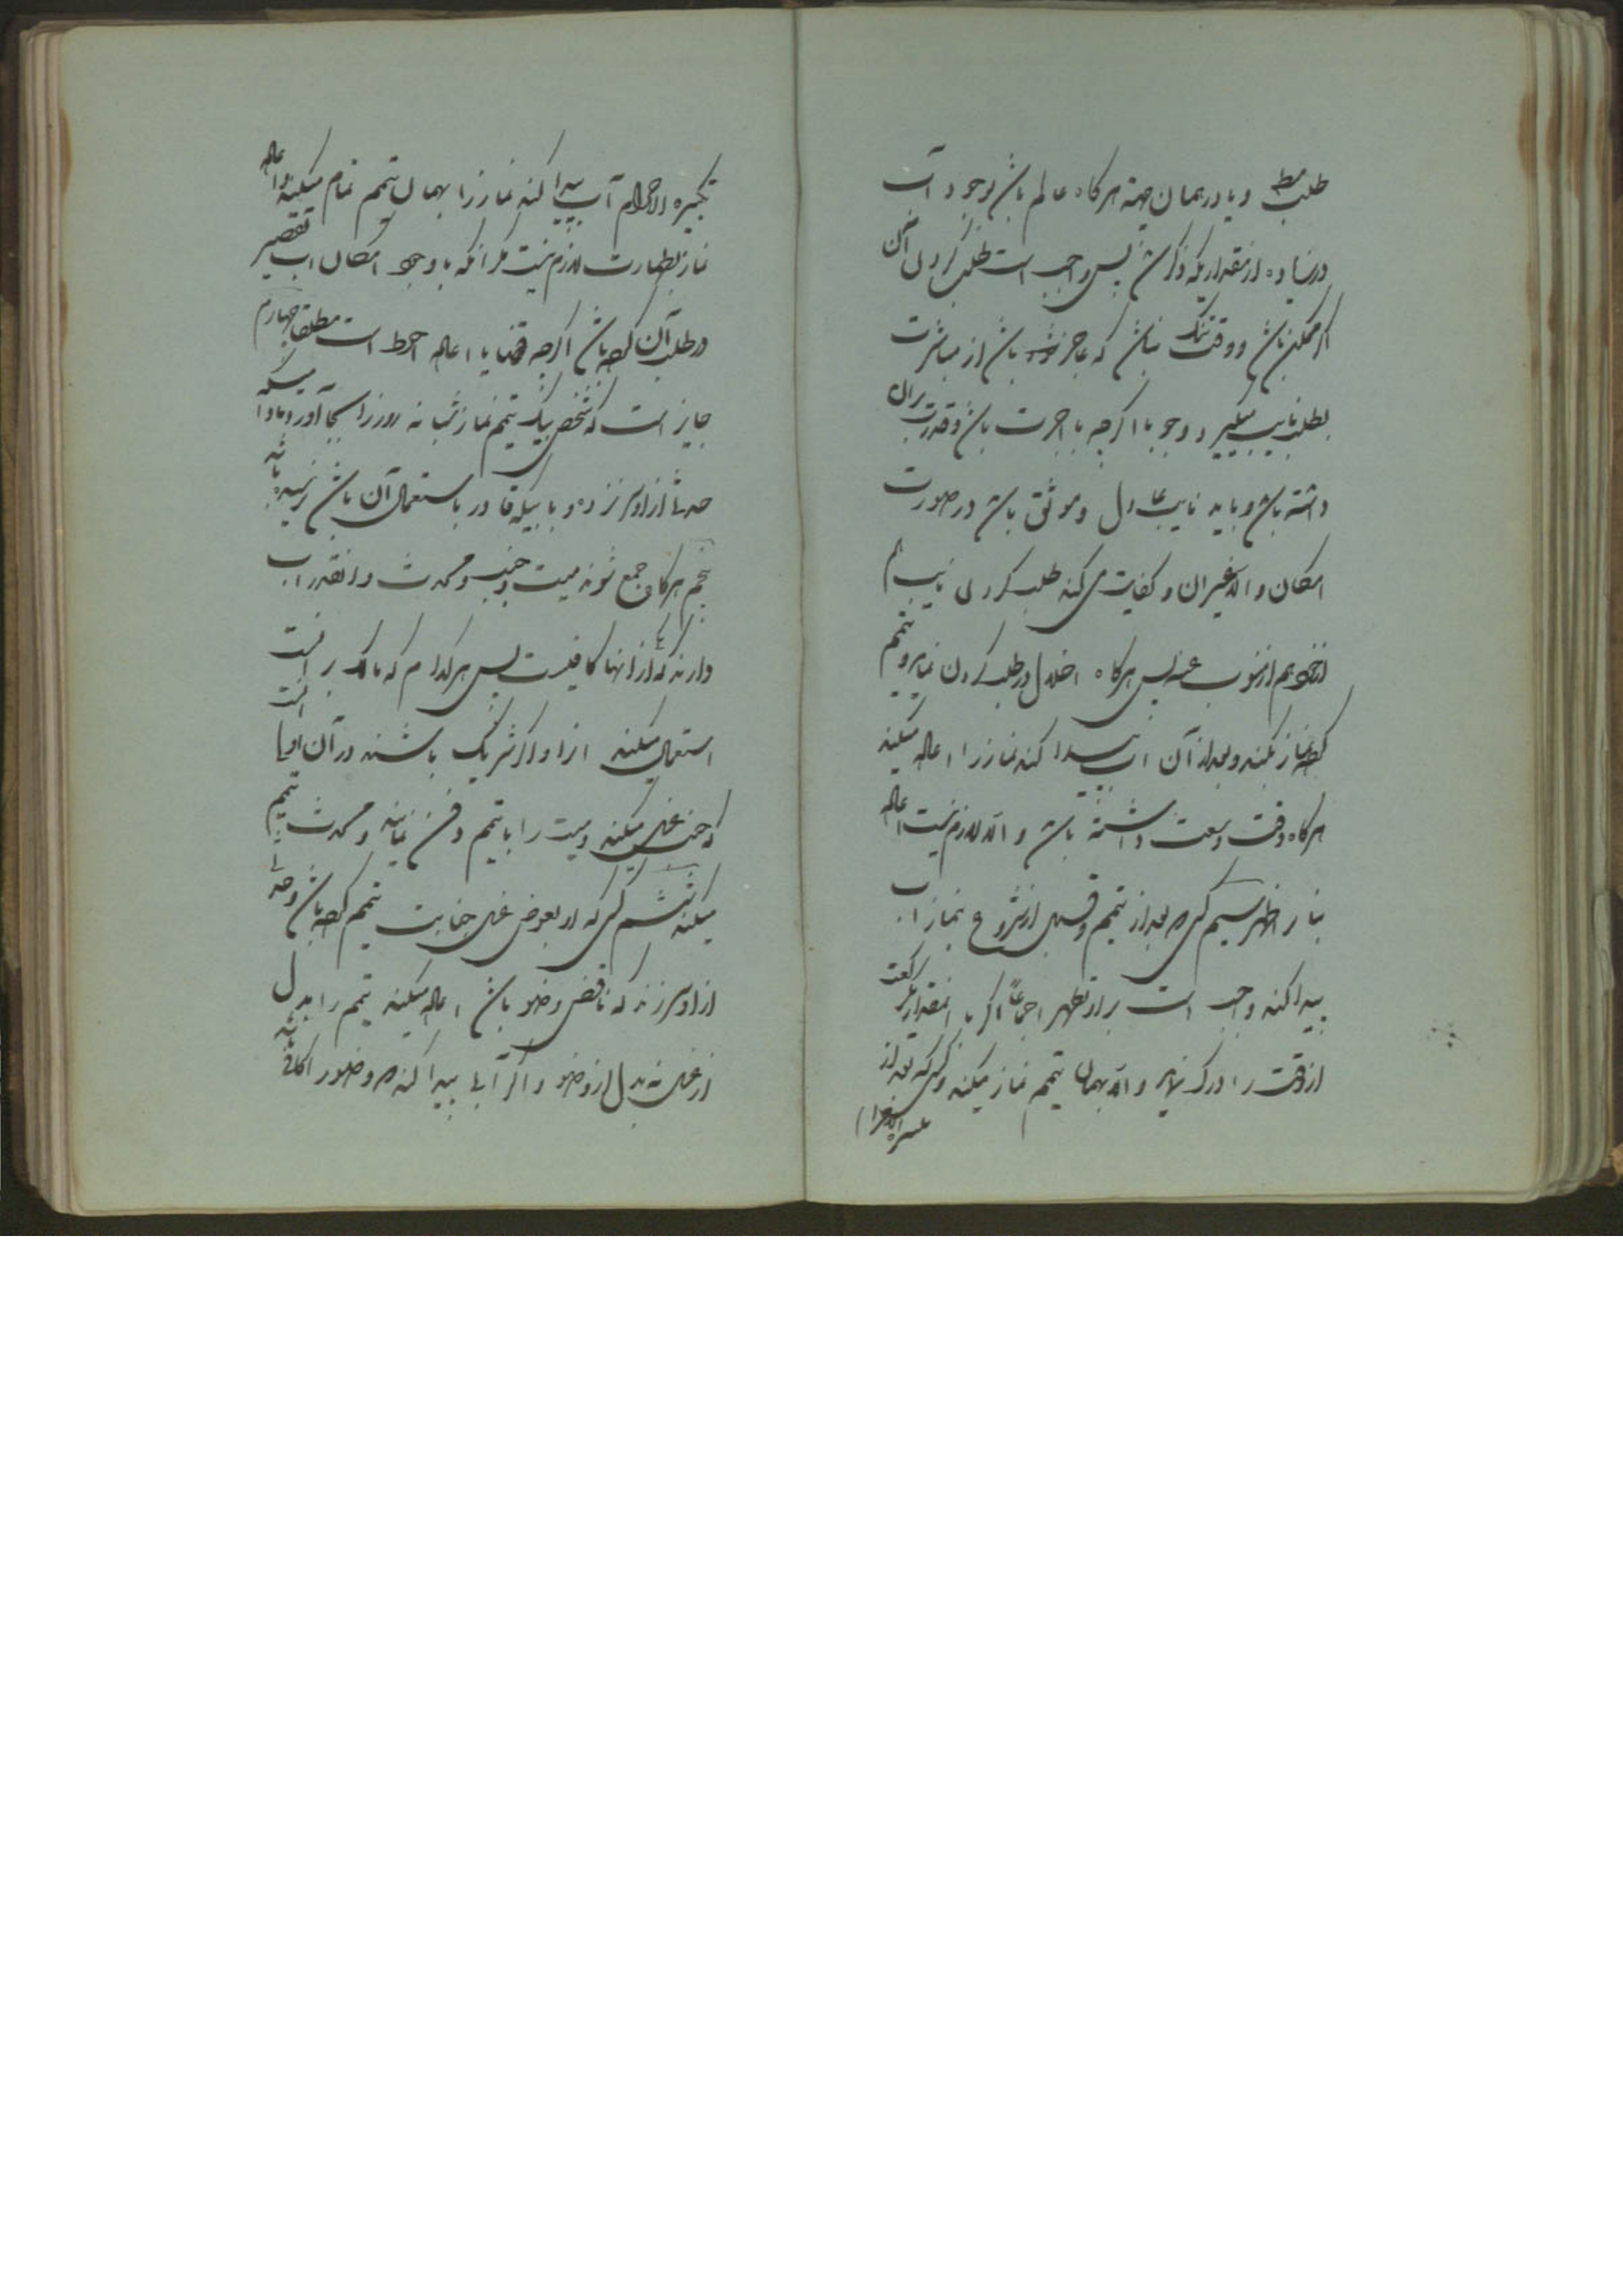 طلب مط و یا در همان جهة هر کاه عالم باشد بوجود آب
در زیاده از مقداریکه ذکر شد پس واجب است طلب کردن آن
اگر ممکن باشد و وقت تنک نباشد که عاجز باشد از مباشرت
بطلب نایب میگیرد وجوبا اگرچه باجرت باشد و قدرت بران
داشته باشد و باید نایب عادل و موثق باشد در صورت
امکان و الا غیر ان و کفایت می کند طلب کردن نایب هم
از خود هم از منوب عنه پس هر کاه اخلال در طلب کردن نماید و تیمم
کرده نماز بکند و بعد از آن اب پیدا کند نماز را اعاده میکند
هر کاه وقت وسعت داشته باشد و الا لازم نیست اعاده
بنا بر اظهر سیم کسی که بعد از تیمم و قبل از شروع بنماز اب
پیدا کند واجب است بر او تطهر اجماعاً اگر بمقدار یکرکعت
از وقت را درک نماید و الا بهمان تیمم نماز میکند و کسی که بعد از
تکبیرة الاحرام
تکبیره الاحرام آب پیدا کند نماز را بهمان تیمم تمام میکند و اعاده
نماز بطهارت لازم نیست مگر انکه با وجود امکان اب تقصیر
در طلب آن کرده باشد اگرچه قضا یا اعاده احوط است مطلقا چهارم
جایز است که شخص بیک تیمم نماز شبانه روز را بجا آورد مادامیکه
حدثی از او سر نزده و یا بیکه قادر باستعمال آن باشد نرسیده باشد
پنجم هر کاه جمع شوند میت و جنب و محدث و انقدر اب
دارند که یکی از انها کافیست پس هر کدام که مالک بر است
استعمال میکند انرا و اگر شریک باشند در آن اولی است
که جنب غسل میکند و میت را با تیمم دفن نمایند و محدث تیمم
میکند ششم کسی که او بعوض غسل جنابت تیمم کرده باشد و حدثی
از او سر زند که ناقض وضو باشد اعاده میکند تیمم را بدل
از غسل نه بدل از وضو و اگر آبی پیدا کند که وضو را کافی باشد